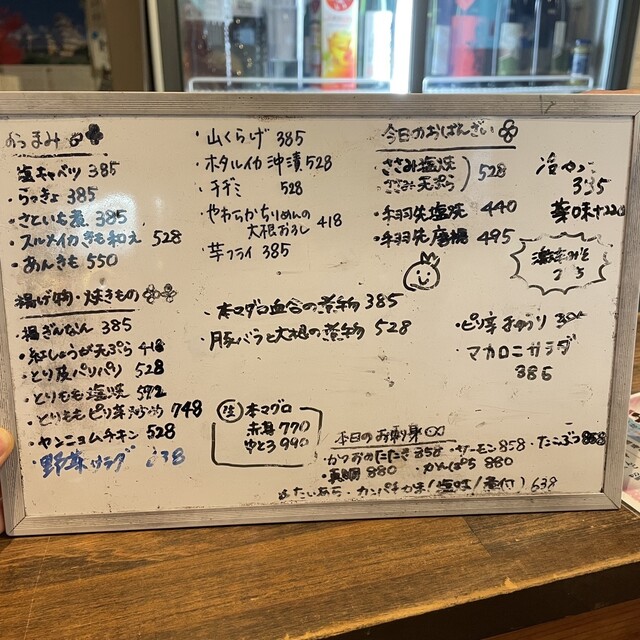 おつまみ
塩キャベツ 385
・らっきょ 385
・さといも煮 385
・スルメイカきも和え 528
・あんきも 550
揚げ物・焼きもの
・揚ぎんなん 385
・紅しょうが天ぷら 418
・とり皮パリパリ 528
・とりもも塩焼 592
・とりももピリ辛 748
・ヤンニョムチキン 528
・野菜サラダ 638
・山くらげ 385
・ホタルイカ沖漬 528
・チヂミ 528
・やわらかちりめんの
大根おろし 418
・芋フライ 385
・本マグロ血合の煮物 385
・豚バラと大根の煮物 528
生 本マグロ
赤身 770
中とろ 990
今日のおばんざい
・ささみ塩焼
・ささみ天ぷら 528
・手羽先塩焼 440
・手羽先唐揚 495
冷やっこ
385
薬味
・ピリ辛きゅうり
・マカロニサラダ
385
本日のお刺身
・かつおのたたき 858 ・サーモン 858 ・たこぶつ 858
・真鯛 880 ・かんぱち 880
たいあら・カンパチかま/塩味/煮付) 638